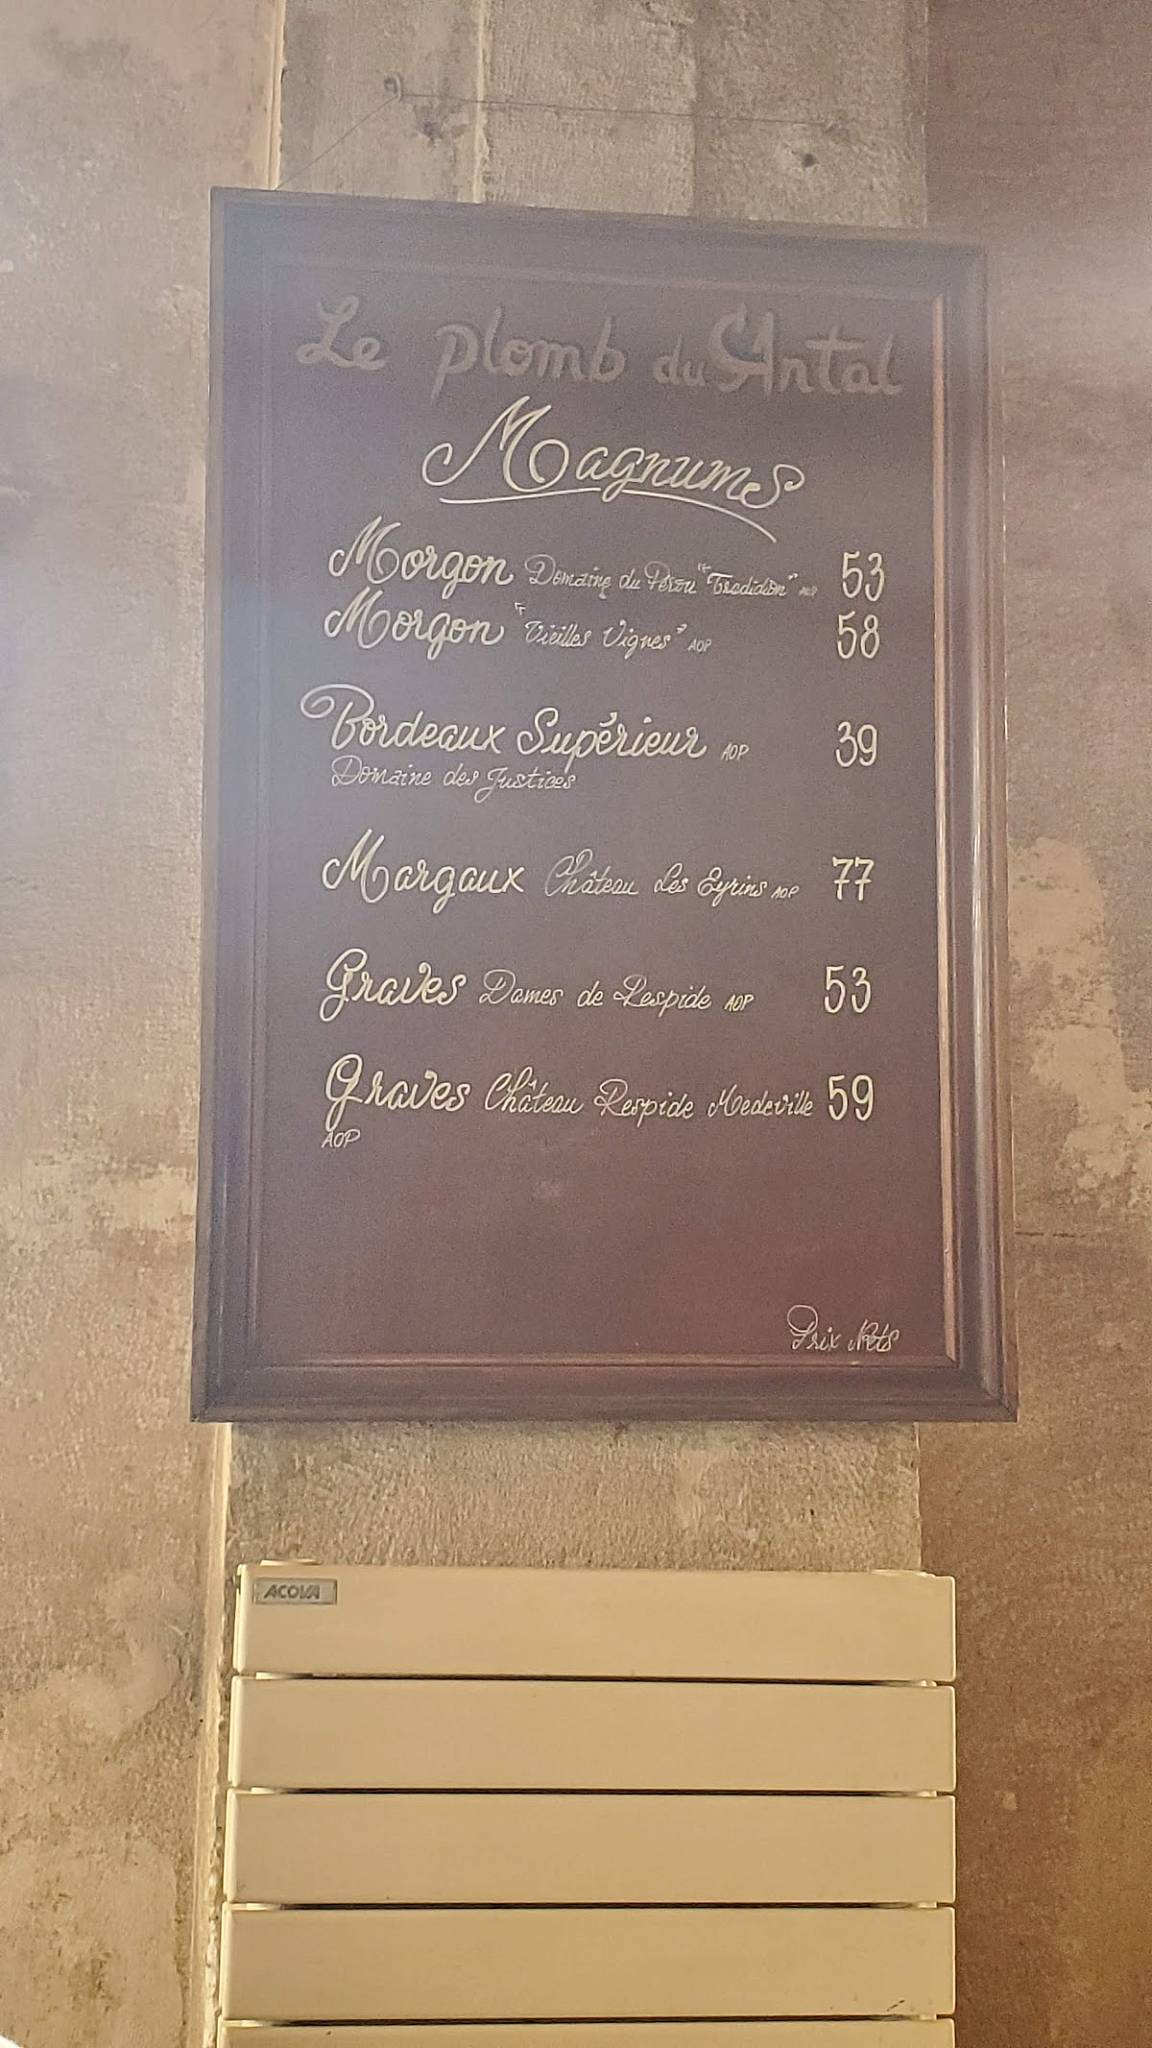 Le plomb du Cantal
Magnums
Morgon Domaine du Pérou "Tradidion" AOP 53
Morgon "Vieilles Vignes" AOP 58
Bordeaux Supérieur AOP 39
Domaine des Justices
Margaux Château Les Eyrins AOP 77
Graves Dames de Respide AOP 53
Graves Château Respide Medeville 59
AOP
Prix Nets
ACOVA